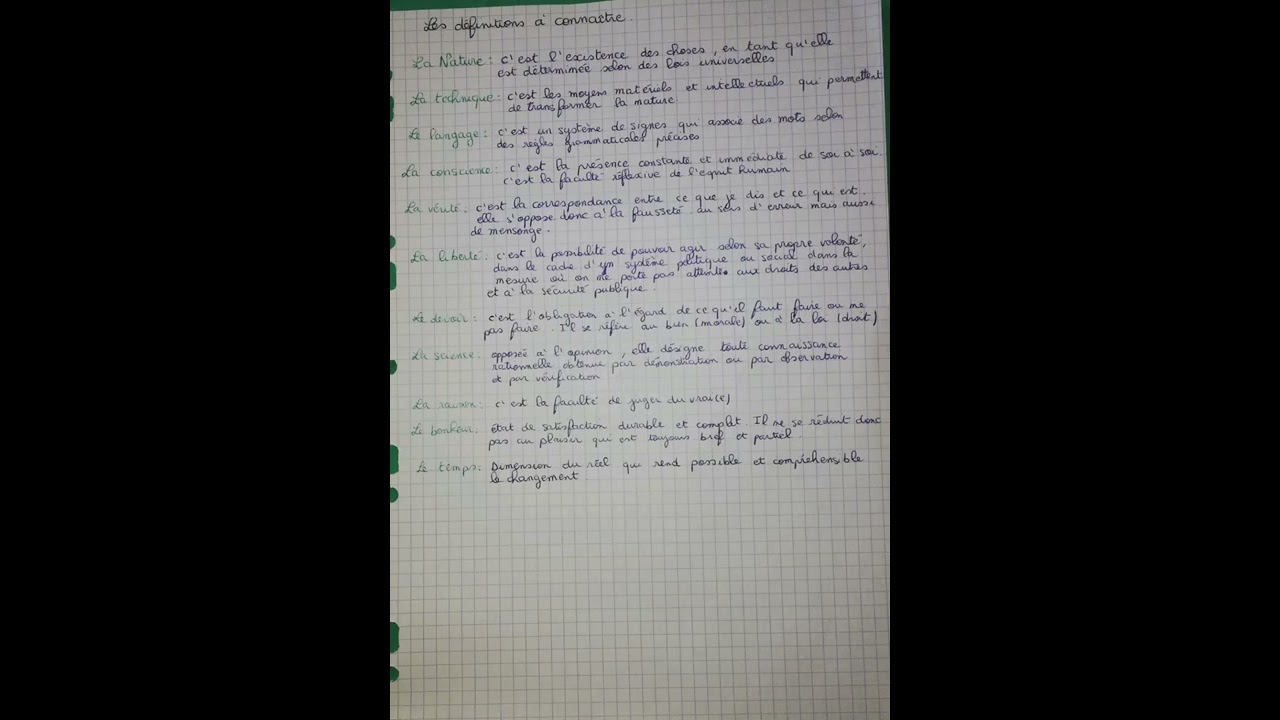 Les définitions à connaître.
La Nature : c'est l'existence des choses, en tant qu'elle
est déterminée selon des lois universelles
La technique : c'est les moyens matériels et intellectuels qui permettent
de transformer la nature.
Le langage : c'est un système de signes qui associe des mots selon
des règles grammaticales précises
La conscience : c'est la présence constante et immédiate de soi à soi.
c'est la faculté réflexive de l'esprit humain
La vérité : c'est la correspondance entre ce que je dis et ce qui est.
elle s'oppose donc à la fausseté au sens d'erreur mais aussi
de mensonge.
La liberté : c'est la possibilité de pouvoir agir selon sa propre volonté,
dans le cadre d'un système politique ou social dans la
mesure où on ne porte pas atteinte aux droits des autres
et à la sécurité publique.
Le devoir : c'est l'obligation à l'égard de ce qu'il faut faire ou ne
pas faire. Il se réfère au bien (morale) ou à la loi (droit)
La science : opposée à l'opinion, elle désigne toute connaissance
rationnelle obtenue par démonstration ou par observation
et par vérification
La raison : c'est la faculté de juger du vrai(e)
Le bonheur : état de satisfaction durable et complet. Il ne se réduit donc
pas au plaisir qui est toujours bref et partiel.
Le temps : Dimension du réel qui rend possible et compréhensible
le changement.